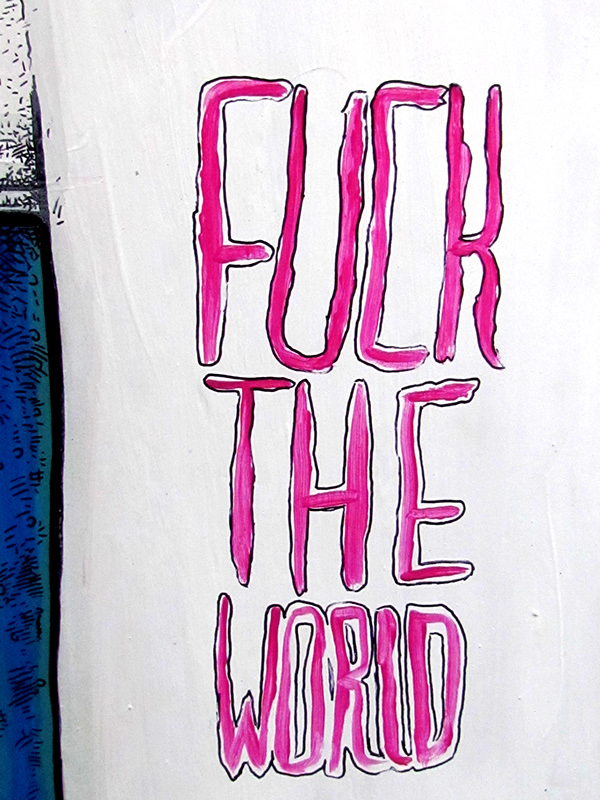 FUCK
THE
WORLD